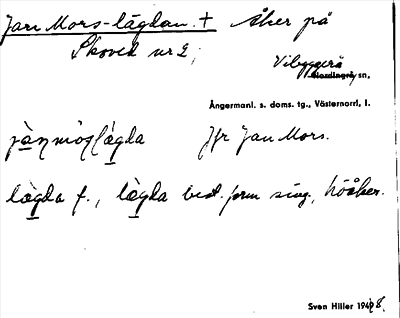 Jan Mors-lägdan. + Åker på
Skoved nr 2;
Vibyggerå
Nordingrå sn,
Ångermanl. s. doms. tg., Västernorrl. l.
Jfr Jan Mors.
lägda f., lägda best. form sing., höåker.
Sven Hiller 1948.